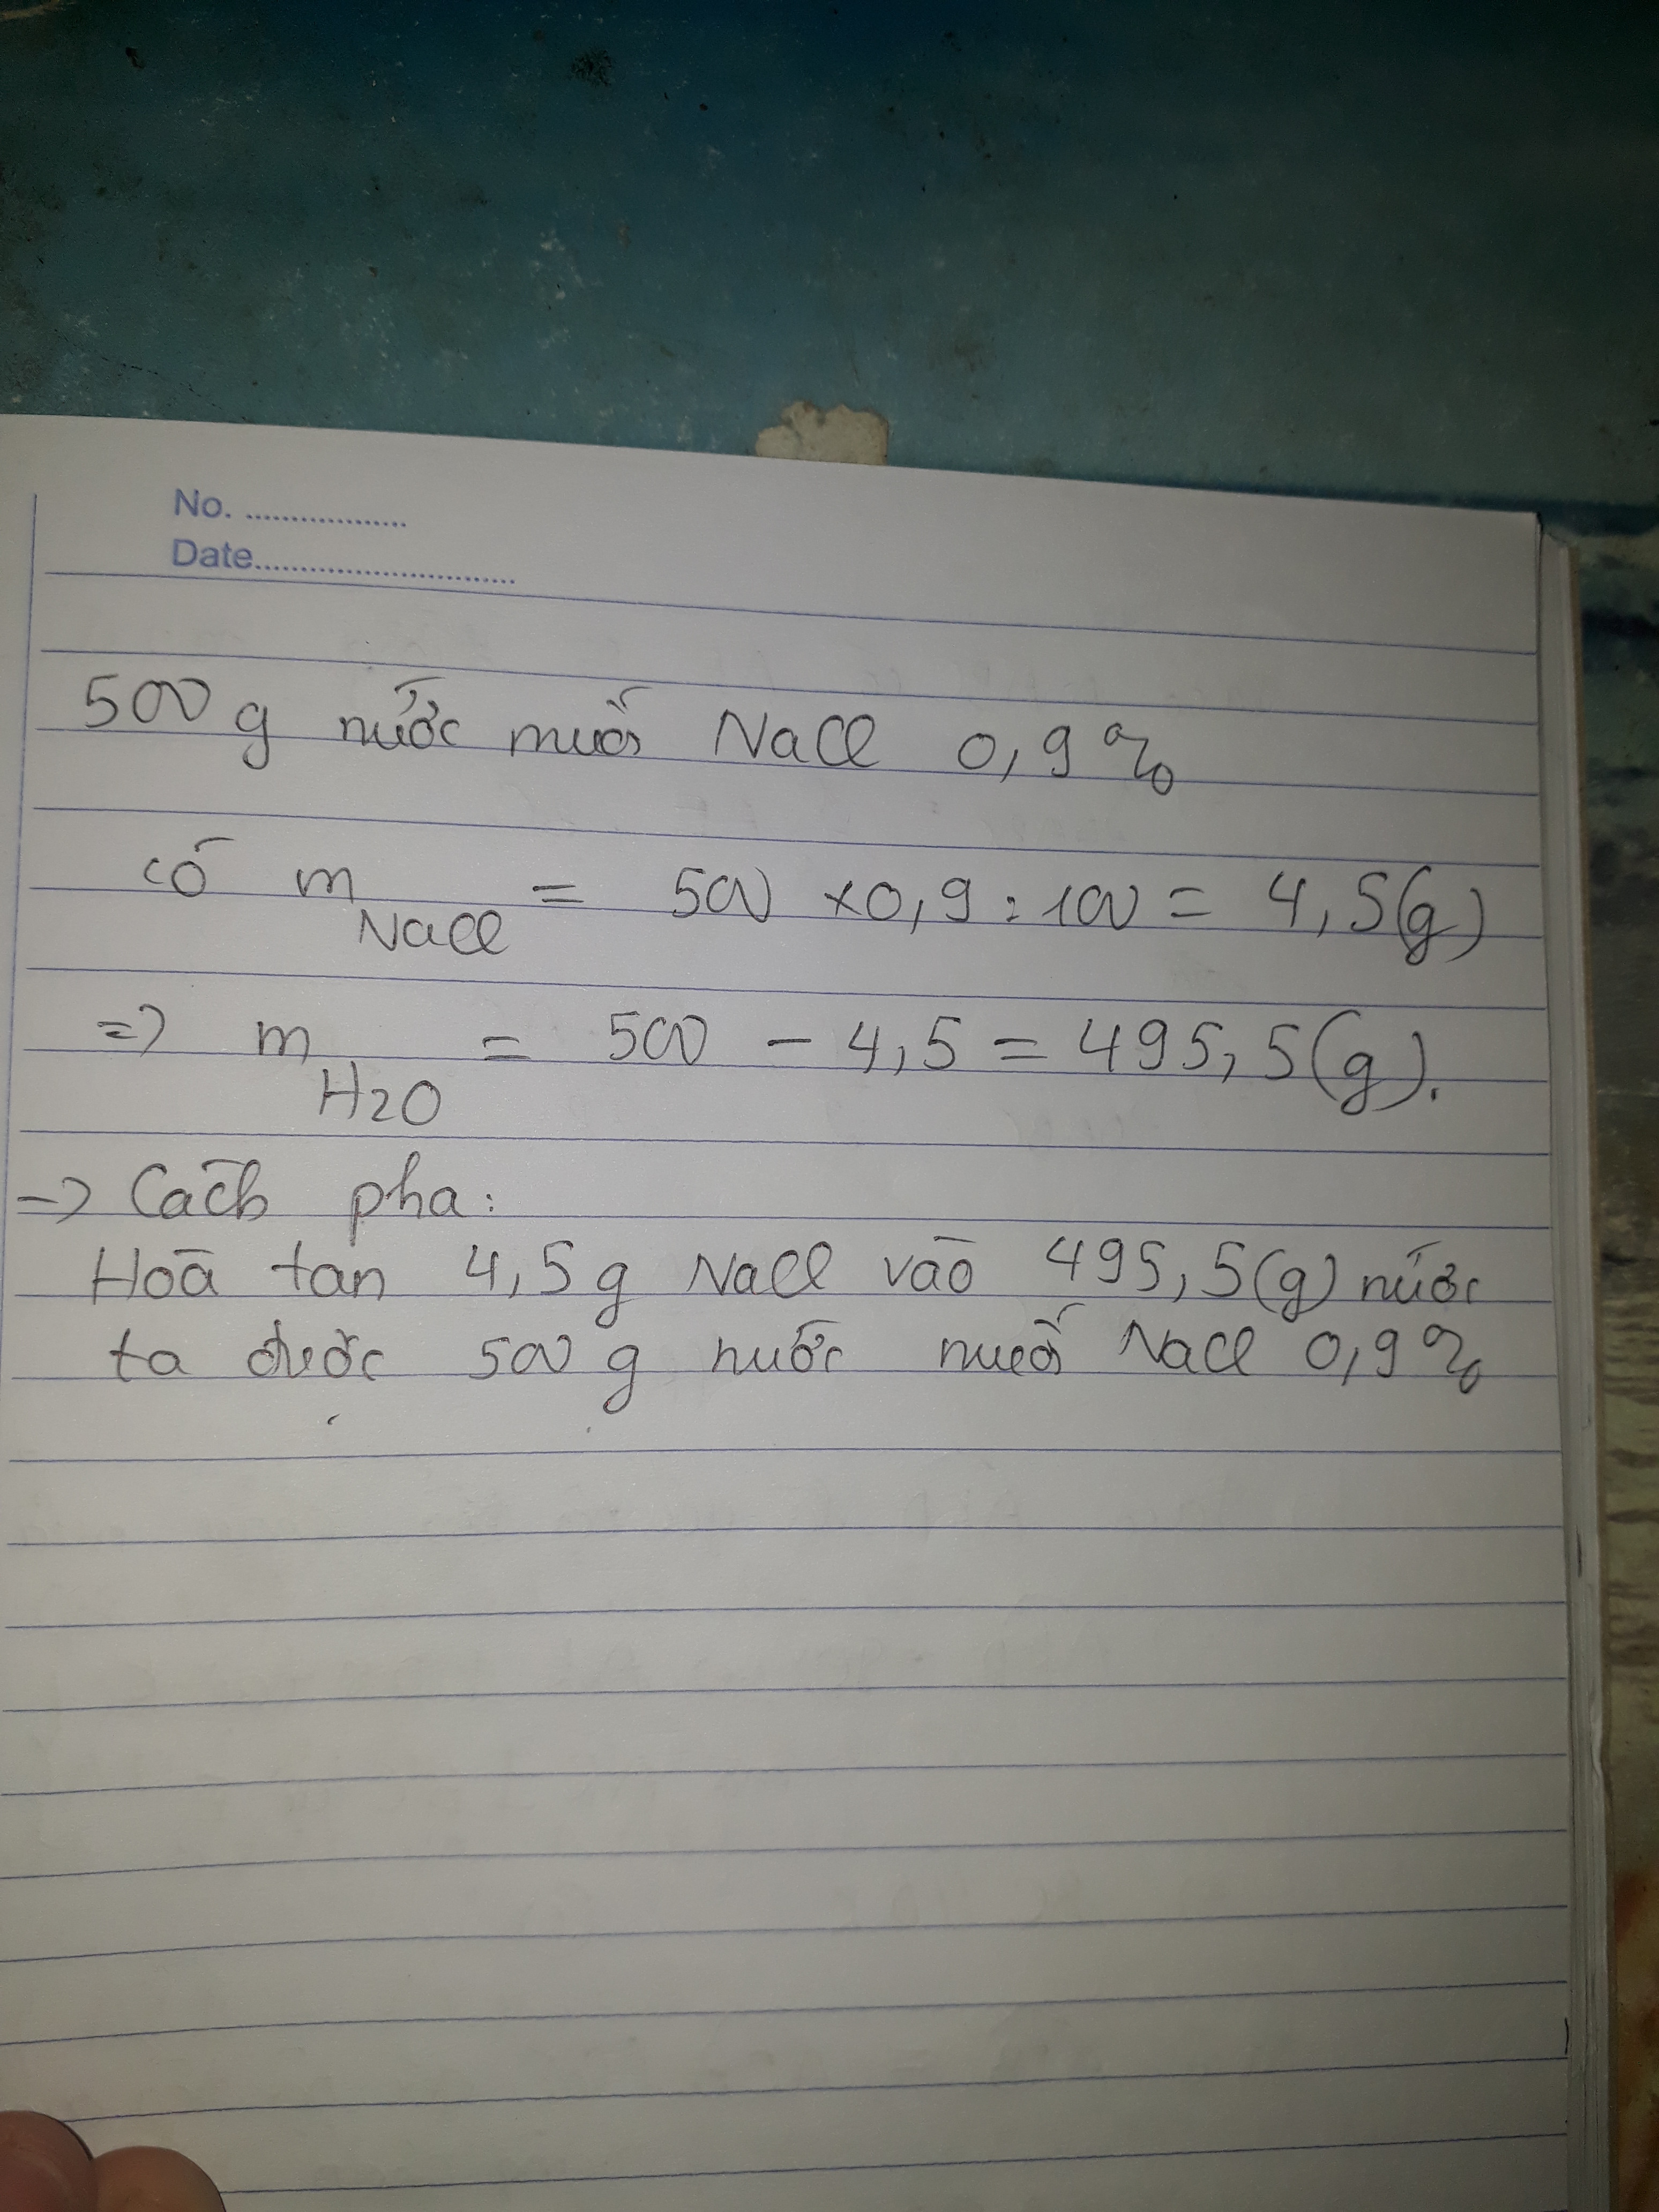 No. ..................
Date.............................
500 g nước muối NaCl 0,9%
có m NaCl = 500 × 0,9 : 100 = 4,5(g)
=> m H2O = 500 - 4,5 = 495,5(g).
-> Cách pha:
Hoà tan 4,5 g NaCl vào 495,5(g) nước
ta được 500 g nước muối NaCl 0,9%